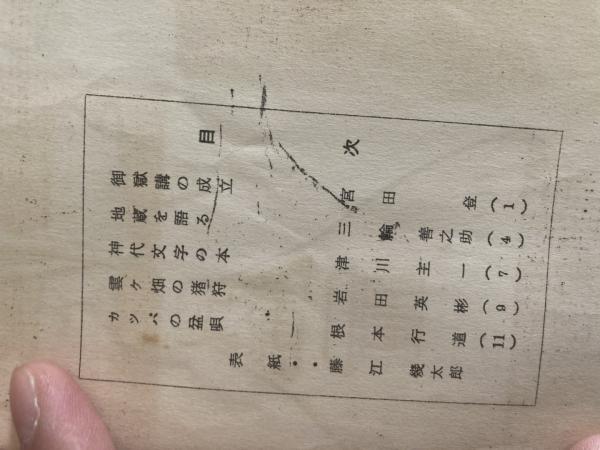 目次
御獄講の成立 宮田登 (1)
地蔵を語る 三輪善之助 (4)
神代文字の本 津川主一 (7)
雲ヶ畑の猪狩 岩田英彬 (9)
カッパの盆唄 根本行道 (11)
表紙・・藤江幾太郎